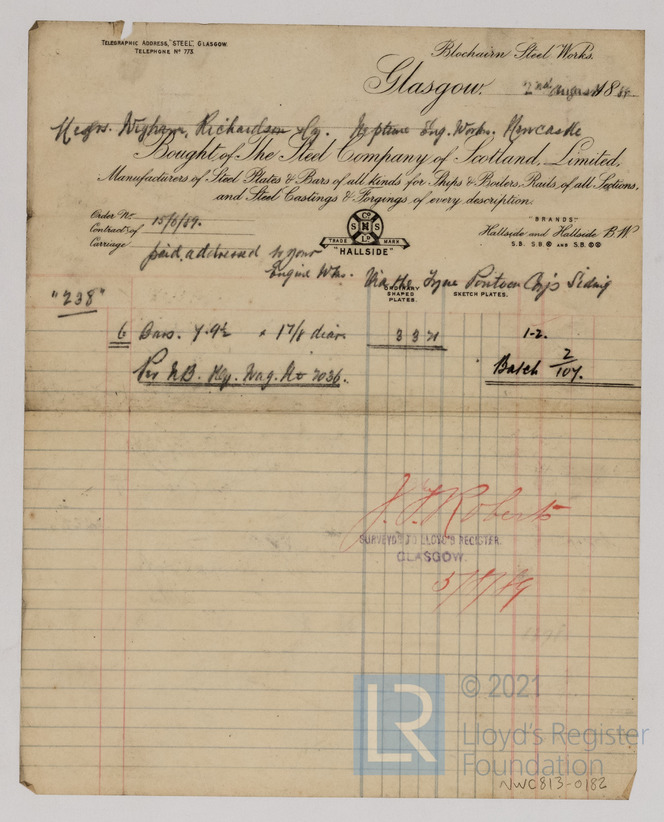 TELEGRAPHIC ADDRESS, "STEEL", GLASGOW.
TELEPHONE Nº 773.
Blochairn Steel Works.
Glasgow, 2nd August 1889
Messrs. Wigham, Richardson & Co. Neptune Eng. Works. Newcastle
Bought of The Steel Company of Scotland, Limited,
Manufacturers of Steel Plates & Bars of all kinds for Ships & Boilers, Rails of all Sections,
and Steel Castings & Forgings of every description.
Order No. 15/6/89.
Contract of
Carriage paid, addressed to your
Engine Wks. Via the Tyne Pontoon Coy's Siding
Cº
S N S
Lº
TRADE MARK
"HALLSIDE"
"BRANDS"
Hallside and Hallside B.W
S.B. S.B.® AND S.B.®®
ORDINARY
SHAPED
PLATES.
SKETCH PLATES.
"238"
6 Bars. 7.9½ x 1 7/8 diar. 3 3 21 1-2.
Per N.B. Rly. Wag. No 2036. Batch 2/107.
J. T. Roberts
SURVEYOR TO LLOYD'S REGISTER.
GLASGOW.
5/8/89
LR
© 2021
Lloyd's Register
Foundation
NWC813-0182